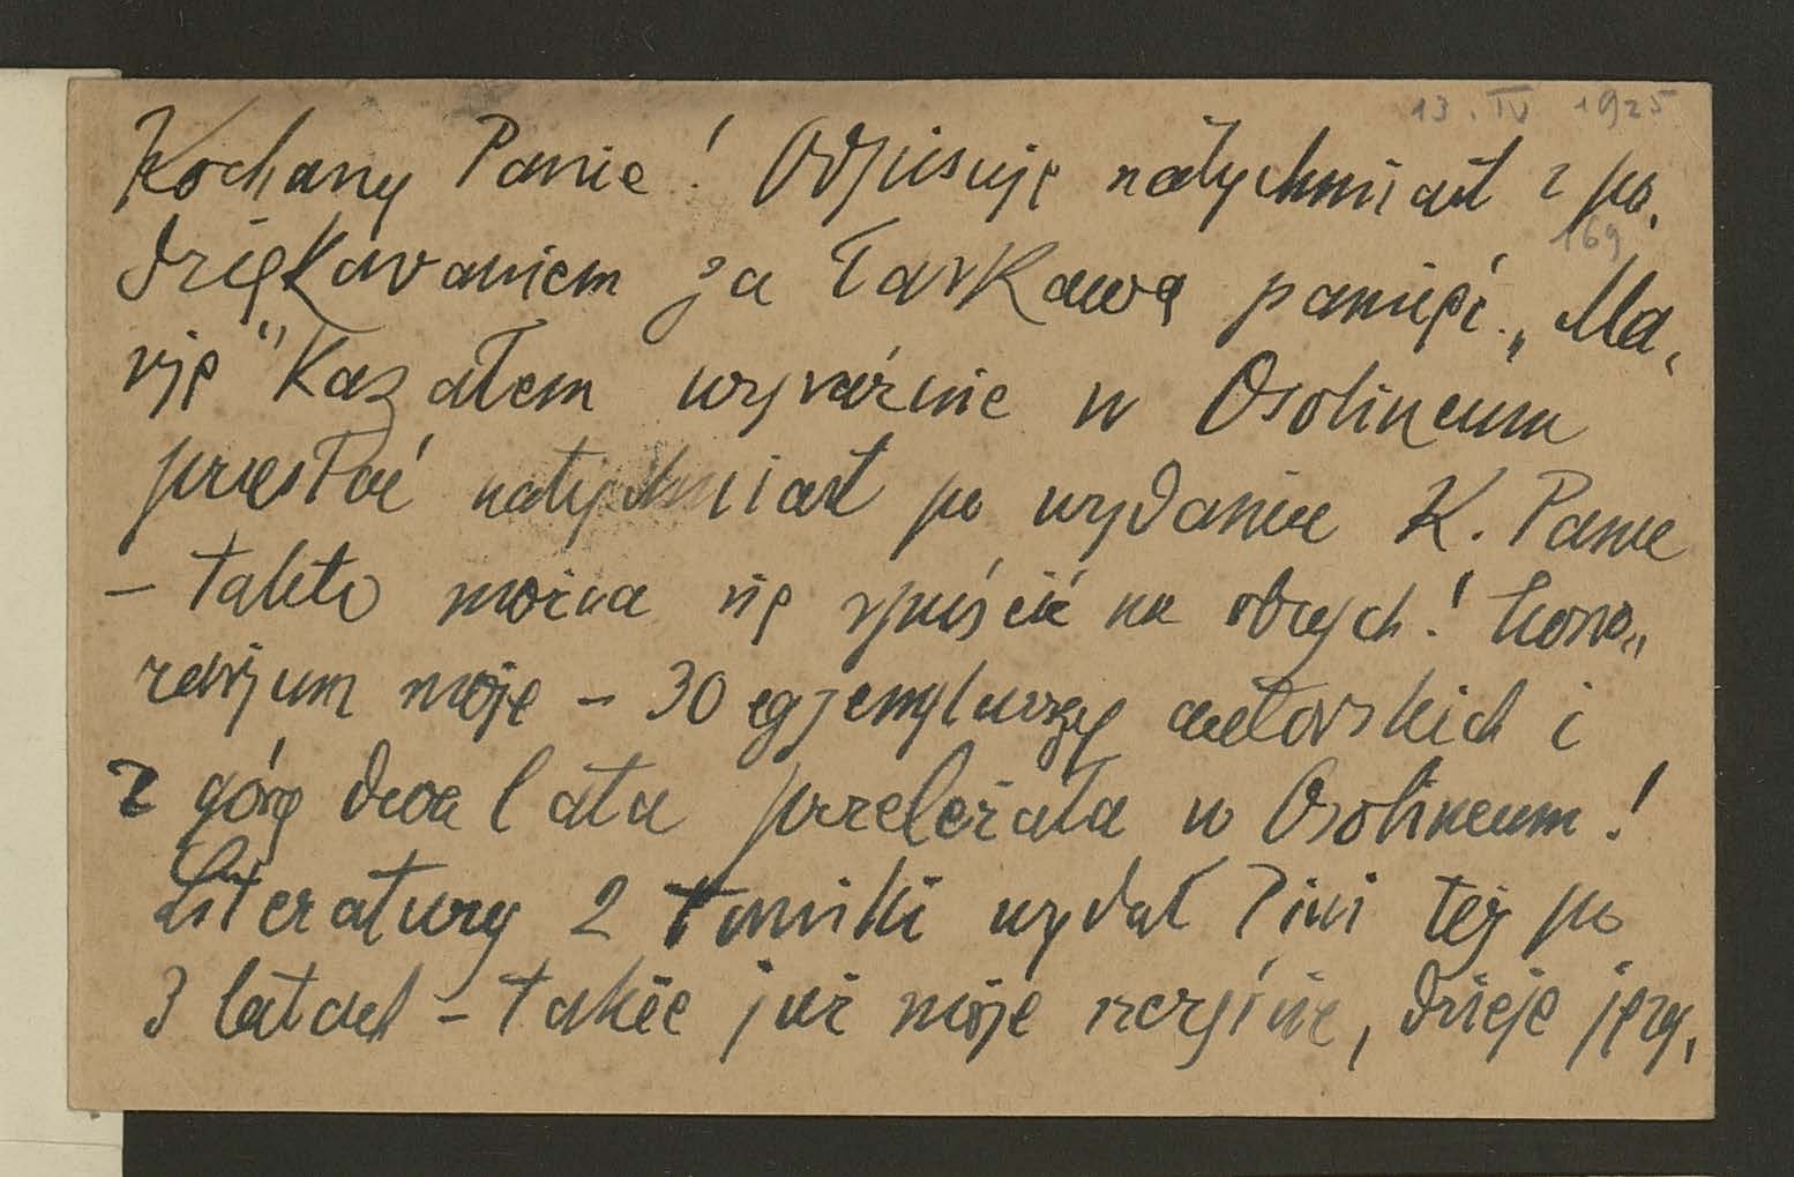 13. IV 1925
Kochany Panie! Odpisuję natychmiast z po-
169
dziękowaniem za łaskawą pamięć. „Ma-
rję" kazałem wyraźnie w Osolineum
przesłać natychmiast po wydaniu K. Panu
– takto można się spuścić na obcych! Hono-
rarjum moje – 30 egzemplarzy autorskich i
z górą dwa lata przeleżała w Osolineum!
Literatury 2 tomiki wydał Pini też po
3 latach – takie już moje szczęście, dzieje języ-